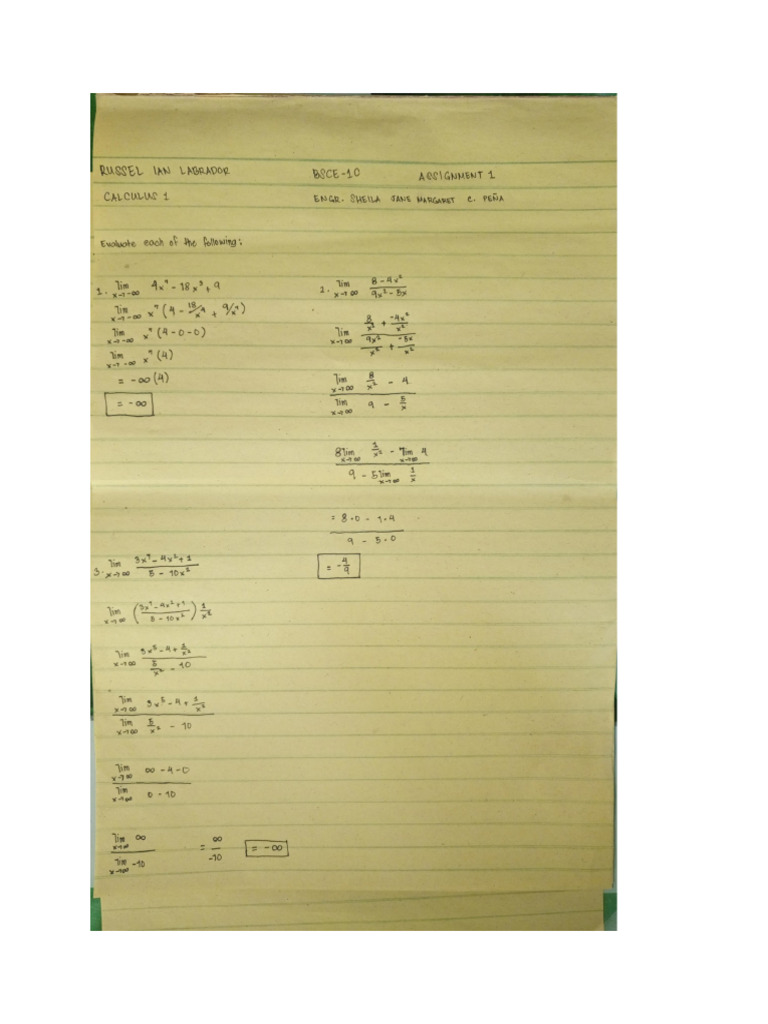 RUSSEL IAN LABRADOR BSCE-10 ASSIGNMENT 1
CALCULUS 1 ENGR. SHEILA JANE MARGARET C. PEÑA
Evaluate each of the following:
1. lim x→-∞ 4x⁷ - 18x³ + 9
lim x→-∞ x⁷ (4 - 18/x⁴ + 9/x⁷)
lim x→-∞ x⁷ (4-0-0)
lim x→-∞ x⁷ (4)
= -∞ (4)
= -∞
2. lim x→∞ 8-4x² / 9x²-5x
lim x→∞ 8/x² + -4x²/x² / 9x²/x² + -5x/x²
lim x→∞ 8/x² - 4
lim x→∞ 9 - 5/x
8 lim x→∞ 1/x² - lim x→∞ 4
9 - 5 lim x→∞ 1/x
= 8·0 - 1·4
9 - 5·0
= -4/9
3. lim x→∞ 3x⁷-4x²+1 / 5-10x²
lim x→∞ (3x⁷-4x²+1 / 5-10x²) 1/x²
lim x→∞ 3x⁵-4+1/x² / 5/x² - 10
lim x→∞ 3x⁵-4+1/x²
lim x→∞ 5/x² - 10
lim x→∞ ∞-4-0
lim x→∞ 0-10
lim x→∞ ∞ = ∞/-10 = -∞
lim x→∞ -10